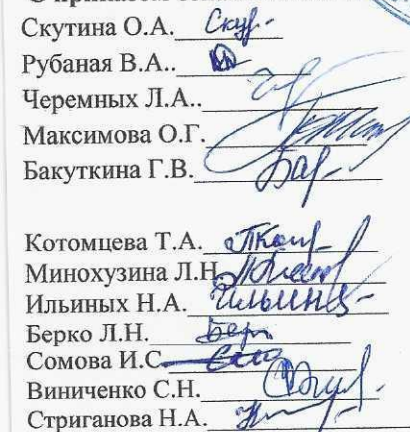 Скутина О.А. Скут-
Рубаная В.А..
Черемных Л.А..
Максимова О.Г.
Бакуткина Г.В. Бак
Котомцева Т.А. ТКот
Минохузина Л.Н
Ильиных Н.А. Ильиных
Берко Л.Н. Бер
Сомова И.С.
Виниченко С.Н.
Стриганова Н.А.